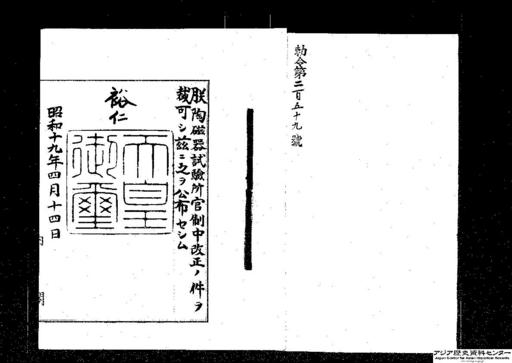 勅令第二百五十九號
朕陶磁器試驗所官制中改正ノ件ヲ
裁可シ茲ニ之ヲ公布セシム
裕仁
天皇
御璽
昭和十九年四月十四日
内閣
アジア歴史資料センター
Japan Center for Asian Historical Records